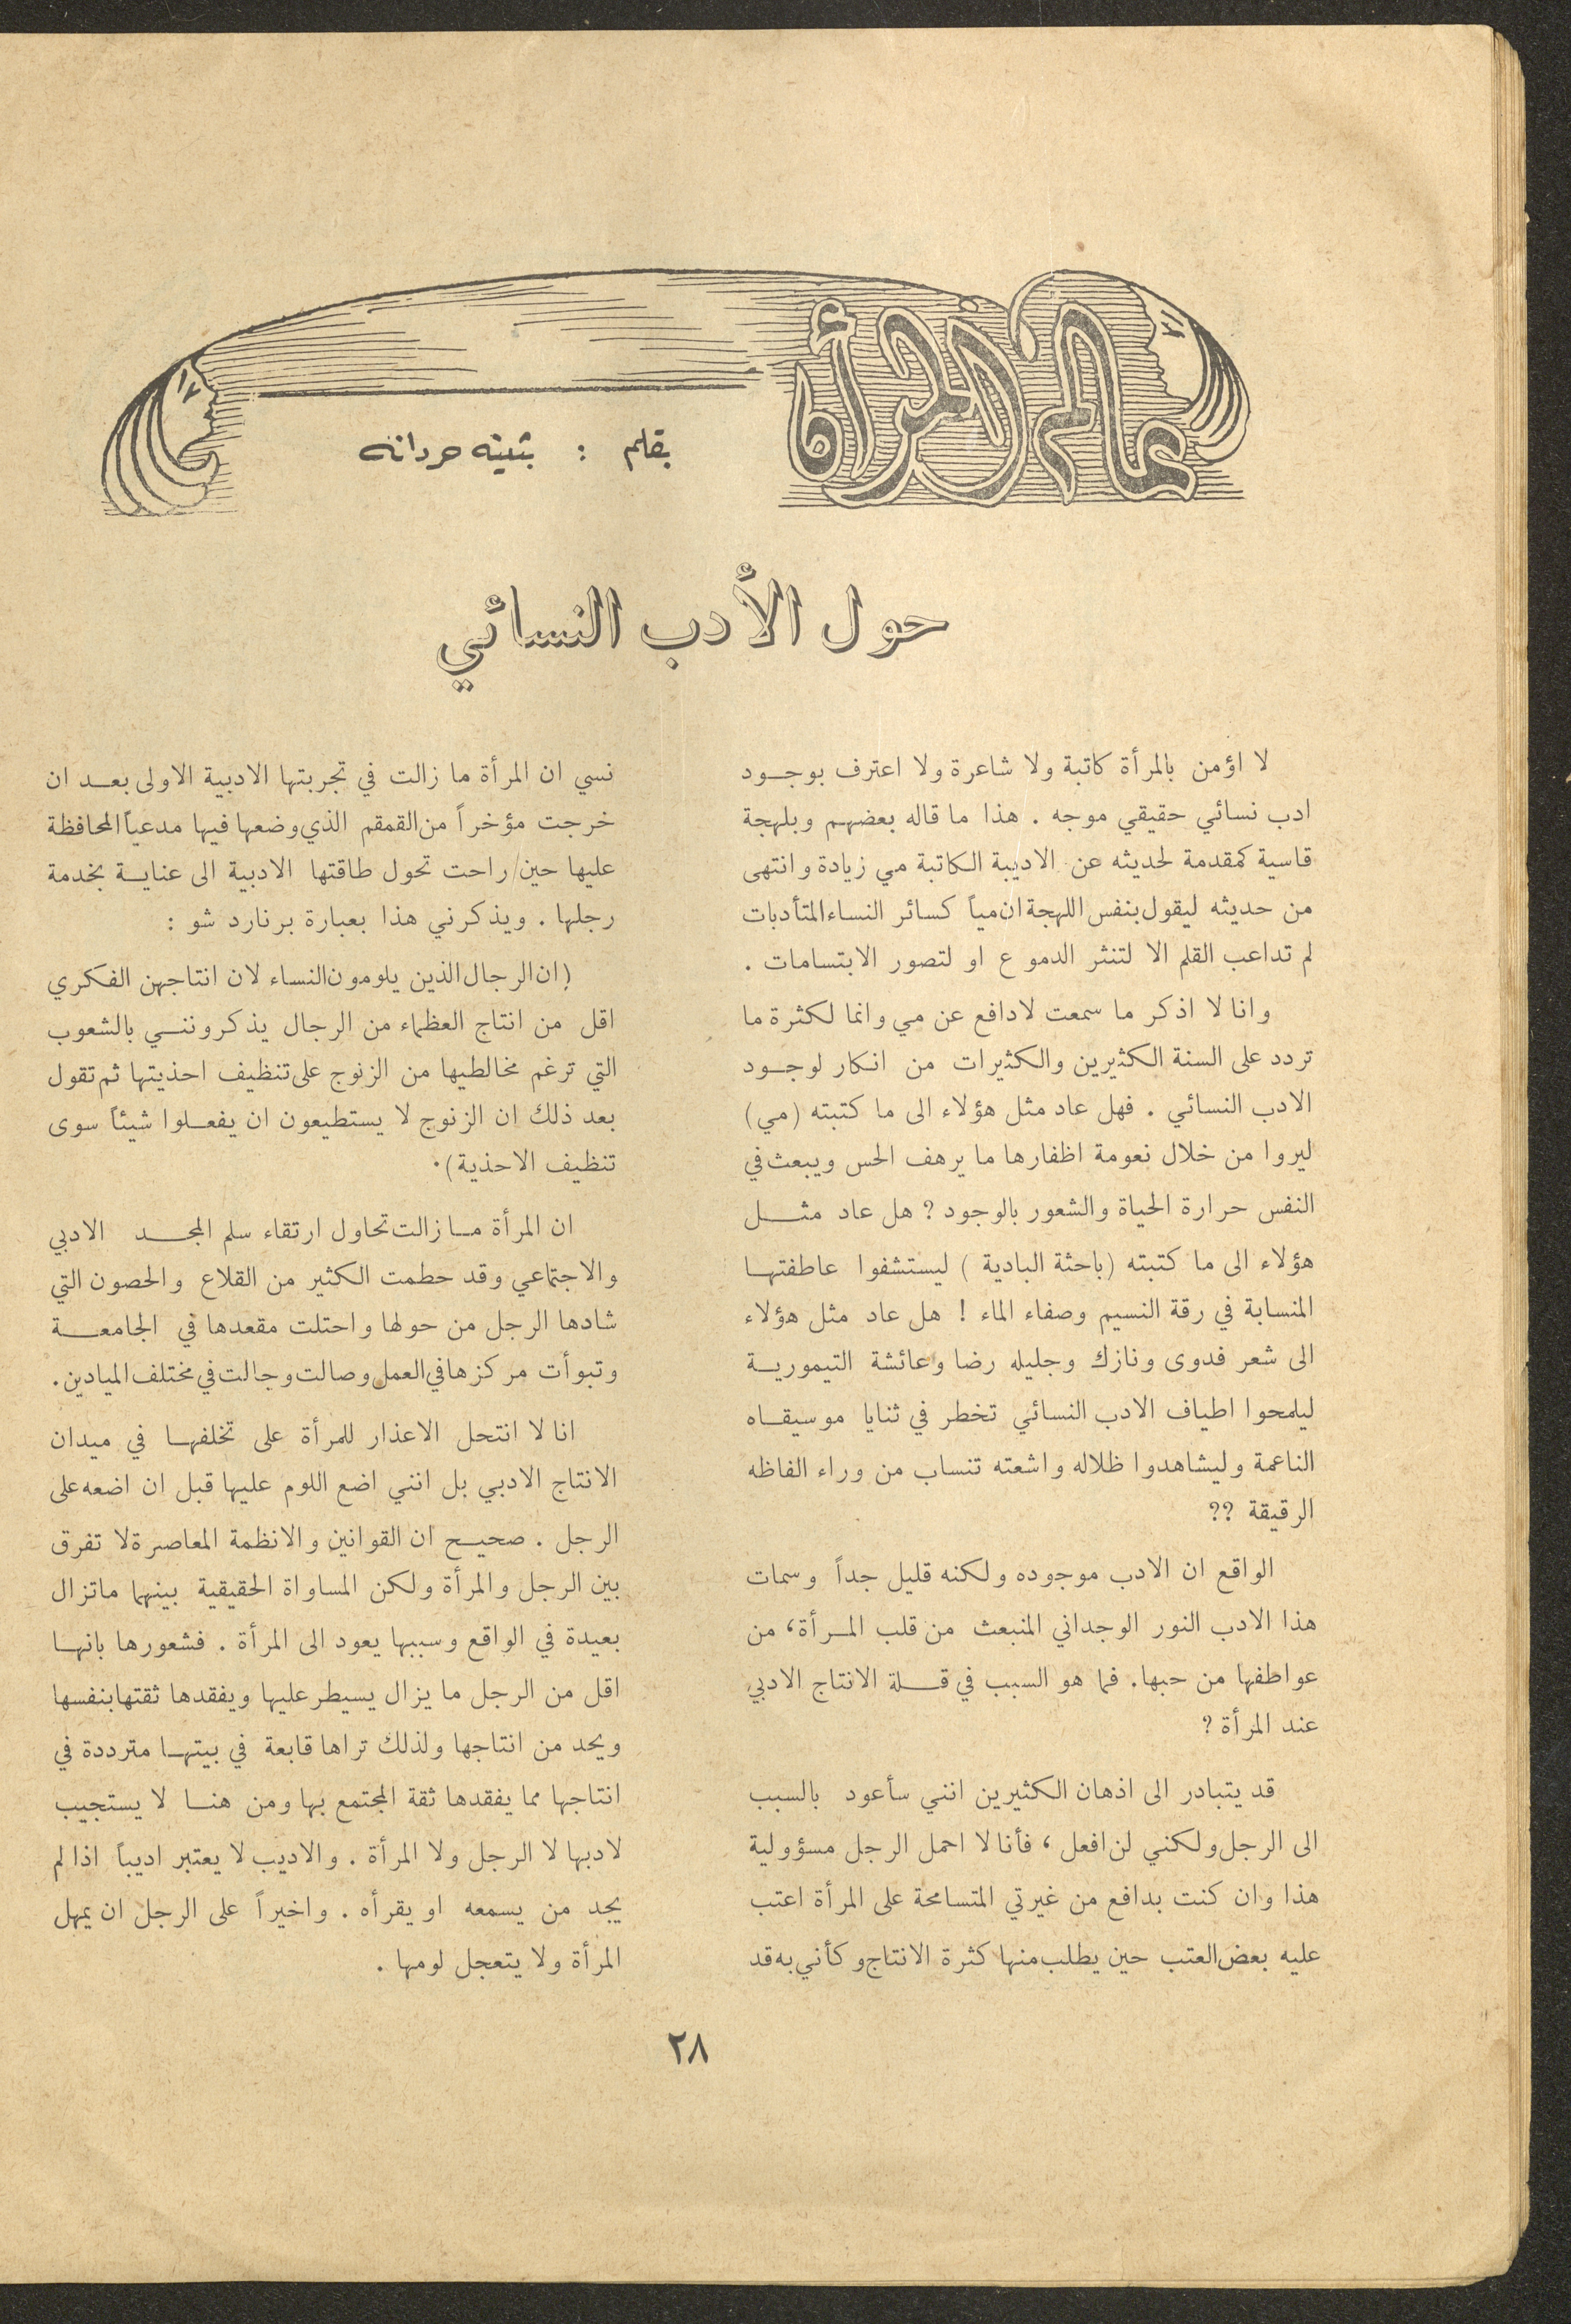 عالم المرأة
بقلم : بثينه حردانه
حول الأدب النسائي
لا اؤمن بالمرأة كاتبة ولا شاعرة ولا اعترف بوجود
ادب نسائي حقيقي موجه . هذا ما قاله بعضهم وبلهجة
قاسية كمقدمة لحديثه عن الاديبة الكاتبة مي زيادة وانتهى
من حديثه ليقول بنفس اللهجة ان مياً كسائر النساء المتأدبات
لم تداعب القلم الا لتنثر الدموع او لتصور الابتسامات .
وانا لا اذكر ما سمعت لادافع عن مي وانما لكثرة ما
تردد على السنة الكثيرين والكثيرات من انكار لوجود
الادب النسائي . فهل عاد مثل هؤلاء الى ما كتبته (مي)
ليروا من خلال نعومة اظفارها ما يرهف الحس ويبعث في
النفس حرارة الحياة والشعور بالوجود ? هل عاد مثل
هؤلاء الى ما كتبته (باحثة البادية ) ليستشفوا عاطفتها
المنسابة في رقة النسيم وصفاء الماء ! هل عاد مثل هؤلاء
الى شعر فدوى ونازك وجليله رضا وعائشة التيمورية
ليلمحوا اطياف الادب النسائي تخطر في ثنايا موسيقاه
الناعمة وليشاهدوا ظلاله واشعته تنساب من وراء الفاظه
الرقيقة ??
الواقع ان الادب موجوده ولكنه قليل جداً وسمات
هذا الادب النور الوجداني المنبعث من قلب المرأة، من
عواطفها من حبها. فما هو السبب في قلة الانتاج الادبي
عند المرأة ?
قد يتبادر الى اذهان الكثيرين انني سأعود بالسبب
الى الرجل ولكني لن افعل ، فأنا لا احمل الرجل مسؤولية
هذا وان كنت بدافع من غيرتي المتسامحة على المرأة اعتب
عليه بعض العتب حين يطلب منها كثرة الانتاج وكأني به قد
نسي ان المرأة ما زالت في تجربتها الادبية الاولى بعد ان
خرجت مؤخراً من القمقم الذي وضعها فيها مدعياً المحافظة
عليها حين/ راحت تحول طاقتها الادبية الى عناية بخدمة
رجلها . ويذكرني هذا بعبارة برنارد شو :
(ان الرجال الذين يلومون النساء لان انتاجهن الفكري
اقل من انتاج العظماء من الرجال يذكرونني بالشعوب
التي ترغم مخالطيها من الزنوج على تنظيف احذيتها ثم تقول
بعد ذلك ان الزنوج لا يستطيعون ان يفعلوا شيئاً سوى
تنظيف الاحذية).
ان المرأة ما زالت تحاول ارتقاء سلم المجد الادبي
والاجتماعي وقد حطمت الكثير من القلاع والحصون التي
شادها الرجل من حولها واحتلت مقعدها في الجامعة
وتبوأت مركزها في العمل وصالت وجالت في مختلف الميادين.
انا لا انتحل الاعذار للمرأة على تخلفها في ميدان
الانتاج الادبي بل انني اضع اللوم عليها قبل ان اضعه على
الرجل . صحيح ان القوانين والانظمة المعاصرة لا تفرق
بين الرجل والمرأة ولكن المساواة الحقيقية بينهما ماتزال
بعيدة في الواقع وسببها يعود الى المرأة . فشعورها بانها
اقل من الرجل ما يزال يسيطر عليها ويفقدها ثقتها بنفسها
ويحد من انتاجها ولذلك تراها قابعة في بيتها مترددة في
انتاجها مما يفقدها ثقة المجتمع بها ومن هنا لا يستجيب
لادبها لا الرجل ولا المرأة . والاديب لا يعتبر اديباً اذا لم
يجد من يسمعه او يقرأه . واخيراً على الرجل ان يمهل
المرأة ولا يتعجل لومها .
٢٨